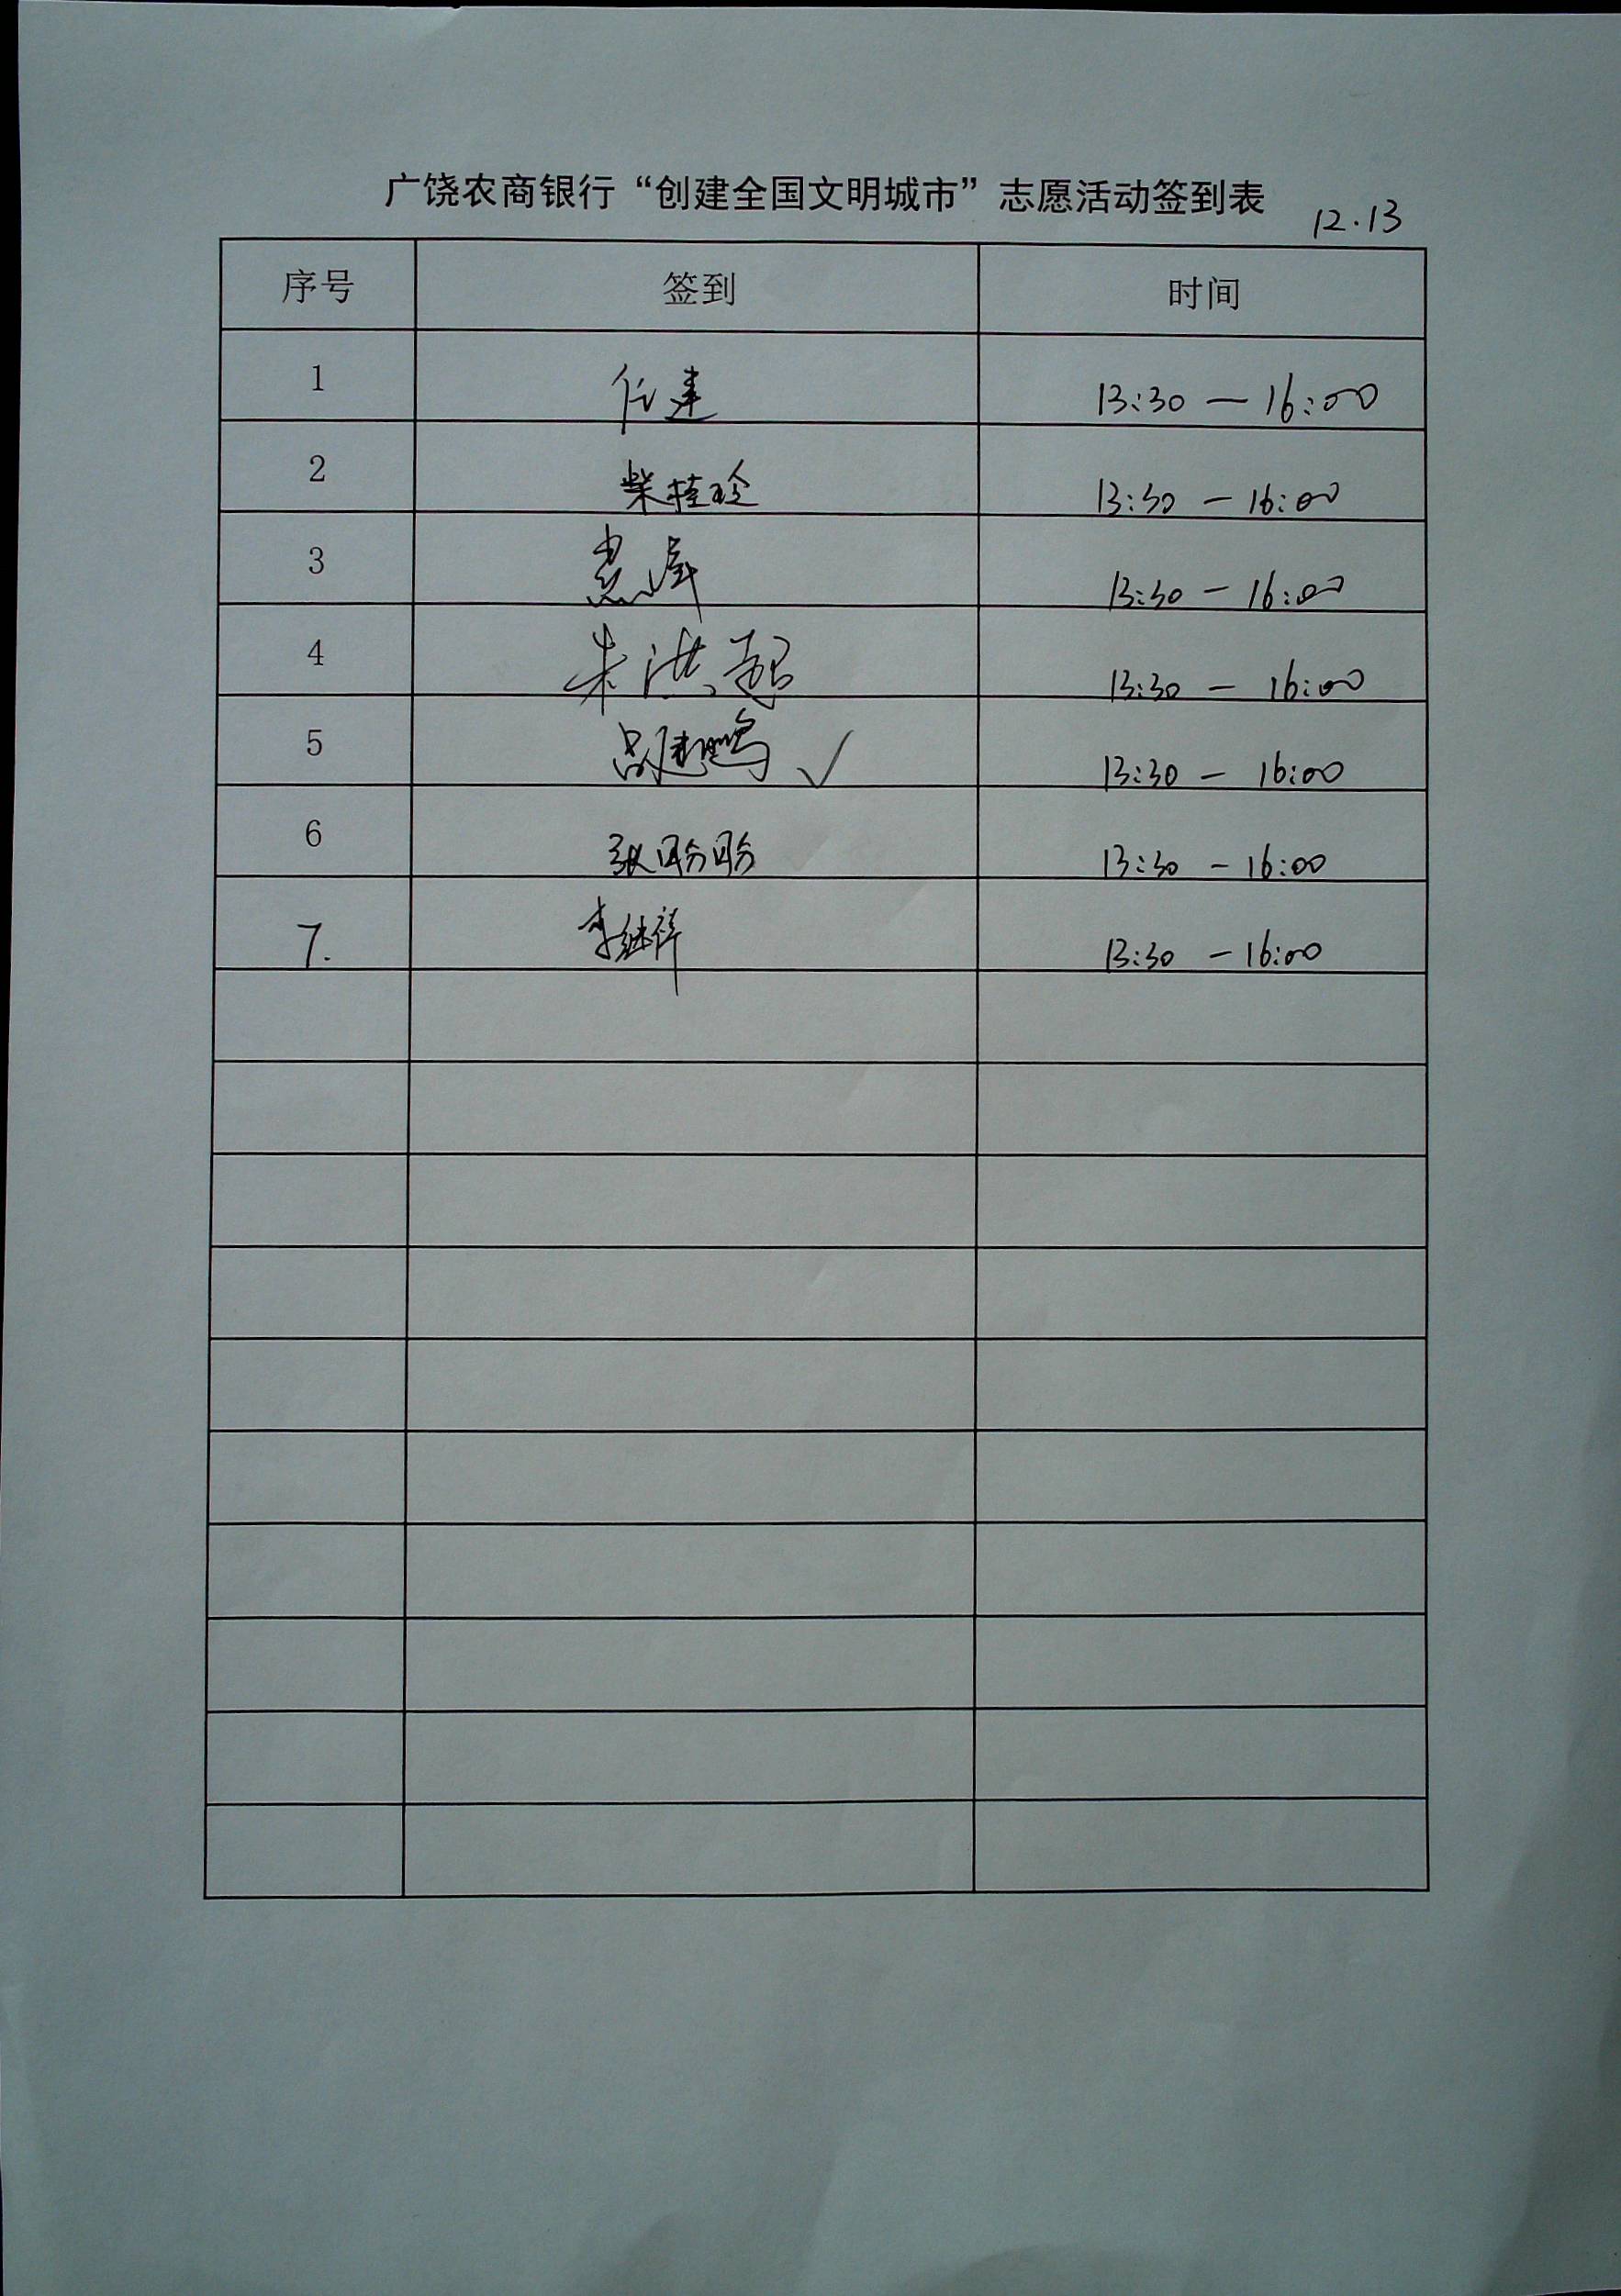 广饶农商银行“创建全国文明城市”志愿活动签到表 12.13
序号 签到 时间
1 任建 13:30 — 16:00
2 柴桂玲 13:30 — 16:00
3 13:30 — 16:00
4 朱洪超 13:30 — 16:00
5 吕建鹏 ✓ 13:30 — 16:00
6 张盼盼 13:30 — 16:00
7. 李继祥 13:30 — 16:00